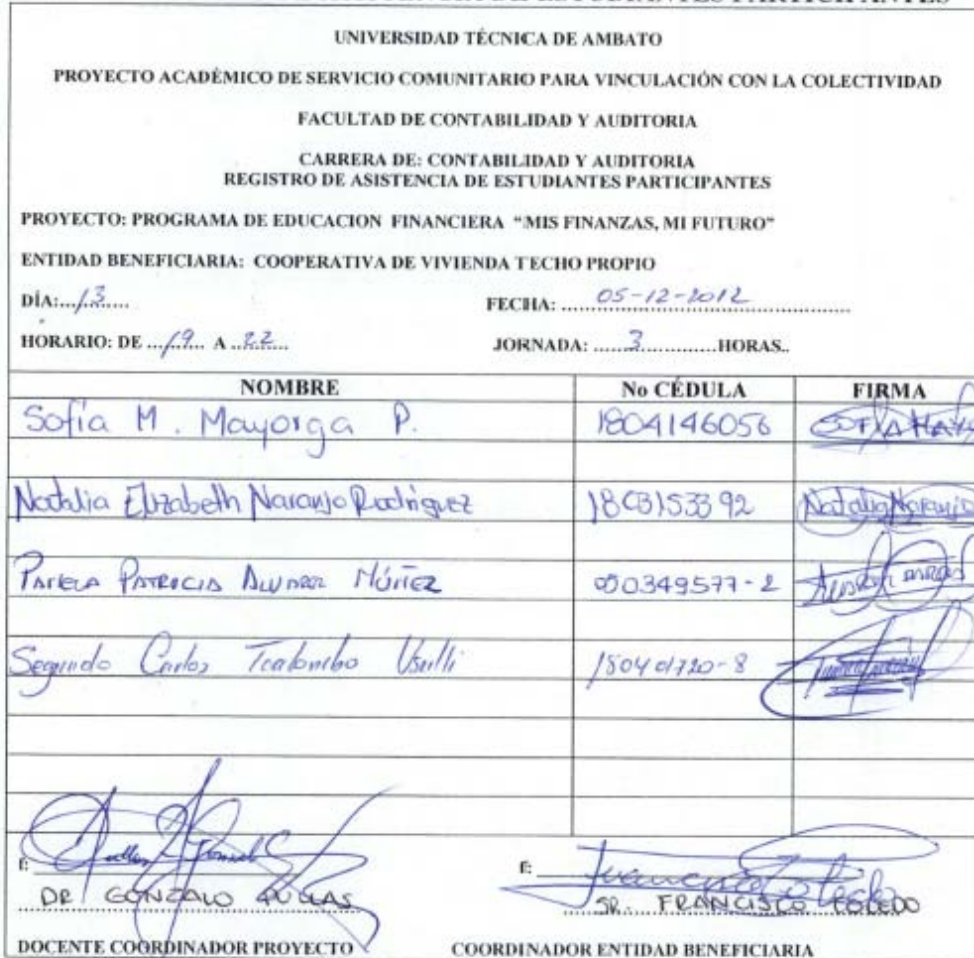 UNIVERSIDAD TÉCNICA DE AMBATO
PROYECTO ACADÉMICO DE SERVICIO COMUNITARIO PARA VINCULACIÓN CON LA COLECTIVIDAD
FACULTAD DE CONTABILIDAD Y AUDITORIA
CARRERA DE: CONTABILIDAD Y AUDITORIA
REGISTRO DE ASISTENCIA DE ESTUDIANTES PARTICIPANTES
PROYECTO: PROGRAMA DE EDUCACION FINANCIERA “MIS FINANZAS, MI FUTURO”
ENTIDAD BENEFICIARIA: COOPERATIVA DE VIVIENDA TECHO PROPIO
DÍA: 13 FECHA: 05-12-2012
HORARIO: DE 19 A 22 JORNADA: 3 HORAS..
NOMBRE No CÉDULA FIRMA
Sofía M. Mayorga P. 1804146056
Natalia Elizabeth Naranjo Rodriguez 1803153392 Natalia Naranjo
PATRICIA NÚÑEZ 050349577-2
Segundo Carlos
F: F:
DR GONZALO SR. FRANCISCO TOLEDO
DOCENTE COORDINADOR PROYECTO COORDINADOR ENTIDAD BENEFICIARIA